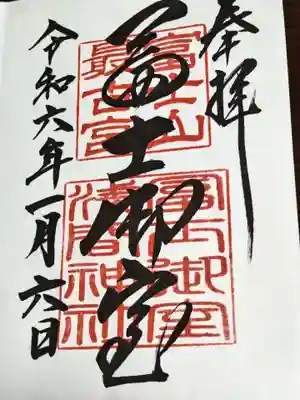 奉拝
冨士御室
富士山
最古宮
冨士御室
浅間神社
令和六年一月六日